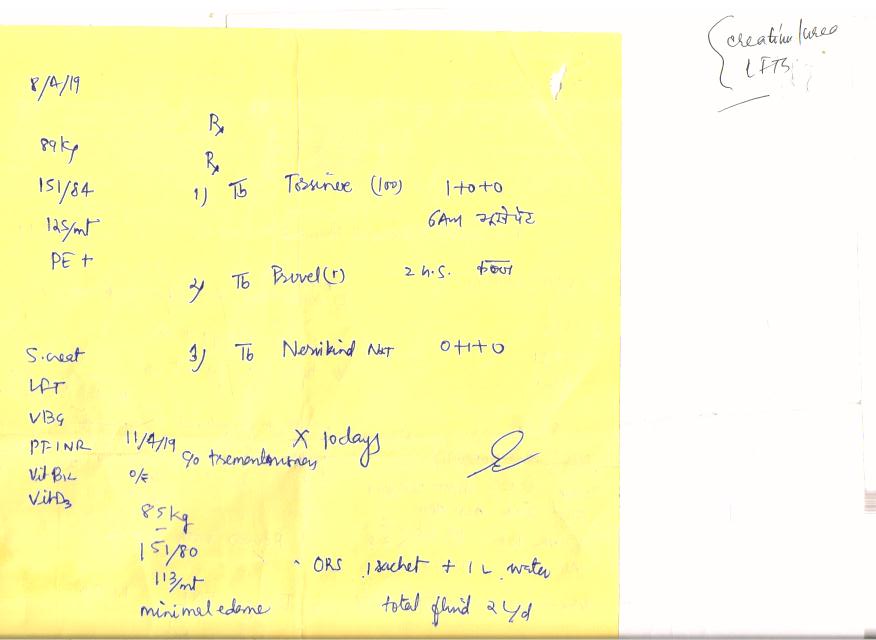 creatinine/urea
LFTs
8/4/19
Rx
89 kg
Rx
151/84
1) Tb (100) 1+0+0
125/mt
6 AM भूखे पेट
PE +
2) Tb 2 h.s.
S. creat
3) Tb Nervikind 0+1+0
LFT
VBG
PT-INR
11/4/19
X 10 days
Vit B12
c/o
o/E
Vit D3
85 kg
151/80
ORS 1 sachet + 1 L water
113/mt
minimal edema
total fluid 2 L/d